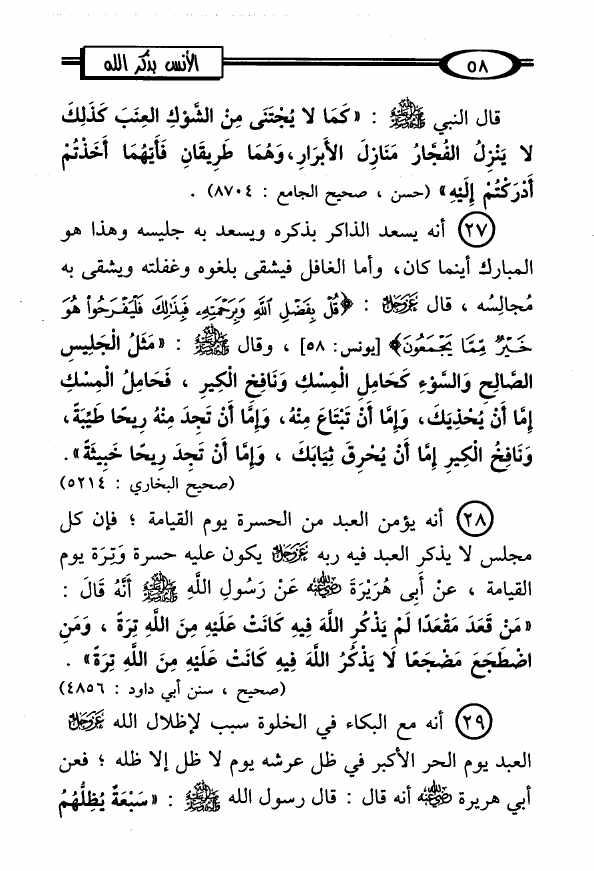 ٥٨
الأنس بذكر الله
قال النبي ﷺ : «كَمَا لا يُجْتَنَى مِنْ الشَّوْكِ العِنَبَ كَذَلِكَ
لا يَنْزِلُ الفُجَّارُ مَنَازِلَ الأبرَارِ،وَهُمَا طَرِيقَانِ فَأَيّهُمَا أَخَذْتُمْ
أَدْرَكْتُمْ إِلَيْهِ» (حسن ، صحيح الجامع : ٨٧٠٤) .
٢٧ أنه يسعد الذاكر بذكره ويسعد به جليسه وهذا هو
المبارك أينما كان، وأما الغافل فيشقى بلغوه وغفلته ويشقى به
مُجالِسُه ، قال عَزَّ وَجَلَّ : ﴿قُلْ بِفَضْلِ اللَّهِ وَبِرَحْمَتِهِۦ فَبِذَٰلِكَ فَلْيَفْرَحُوا۟ هُوَ
خَيْرٌ مِّمَّا يَجْمَعُونَ﴾ [يونس: ٥٨] ، وقال ﷺ : «مَثَلُ الْجَلِيسِ
الصَّالِحِ وَالسَّوْءِ كَحَامِلِ الْمِسْكِ وَنَافِخِ الْكِيرِ ، فَحَامِلُ الْمِسْكِ
إِمَّا أَنْ يُحْذِيَكَ، وَإِمَّا أَنْ تَبْتَاعَ مِنْهُ، وَإِمَّا أَنْ تَجِدَ مِنْهُ رِيحًا طَيِّبَةً،
وَنَافِخُ الْكِيرِ إِمَّا أَنْ يُحْرِقَ ثِيَابَكَ ، وَإِمَّا أَنْ تَجِدَ رِيحًا خَبِيثَةً».
(صحيح البخاري : ٥٢١٤)
٢٨ أنه يؤمن العبد من الحسرة يوم القيامة ؛ فإن كل
مجلس لا يذكر العبد فيه ربه عَزَّ وَجَلَّ يكون عليه حسرة وَتِرَة يوم
القيامة ، عَنْ أَبِى هُرَيْرَةَ رضي الله عنه عَنْ رَسُولِ اللَّهِ ﷺ أَنَّهُ قَالَ :
«مَنْ قَعَدَ مَقْعَدًا لَمْ يَذْكُرِ اللَّهَ فِيهِ كَانَتْ عَلَيْهِ مِنَ اللَّهِ تِرَةً ، وَمَنِ
اضْطَجَعَ مَضْجَعًا لَا يَذْكُرُ اللَّهَ فِيهِ كَانَتْ عَلَيْهِ مِنَ اللَّهِ تِرَةً» .
(صحيح ، سنن أبي داود : ٤٨٥٦)
٢٩ أنه مع البكاء في الخلوة سبب لإظلال الله عَزَّ وَجَلَّ
العبد يوم الحر الأكبر في ظل عرشه يوم لا ظل إلا ظله ؛ فعن
أبي هريرة رضي الله عنه أنه قال : قال رسول الله ﷺ : «سَبْعَةٌ يُظِلُّهُمُ